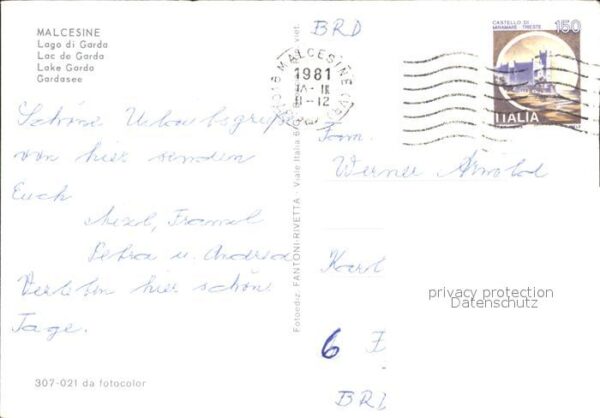 MALCESINE
Lago di Garda
Lac de Garda
Lake Garda
Gardasee
Schöne Urlaubsgrüße
von hier senden
Euch
Franzl
Petra u. Andrea
Verleben hier schöne
Tage.
307-021 da fotocolor
Fotoediz. FANTONI-RIVETTA Viale Italia
viet.
BRD
MALCESINE
1981
CASTELLO DI
MIRAMARE TRIESTE
150
ITALIA
Fam.
Werner Arnold
Karl
privacy protection
Datenschutz
6
BRD